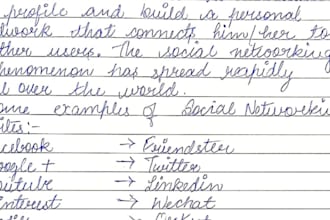 profile and build a personal
work that connects him/her to
ther users. The social networking
henomenon has spread rapidly
l over the world.
ome examples of Social Networki
ites:-
acebook → Friendster
oogle + → Twitter
outube → Linkedin
interest → Wechat